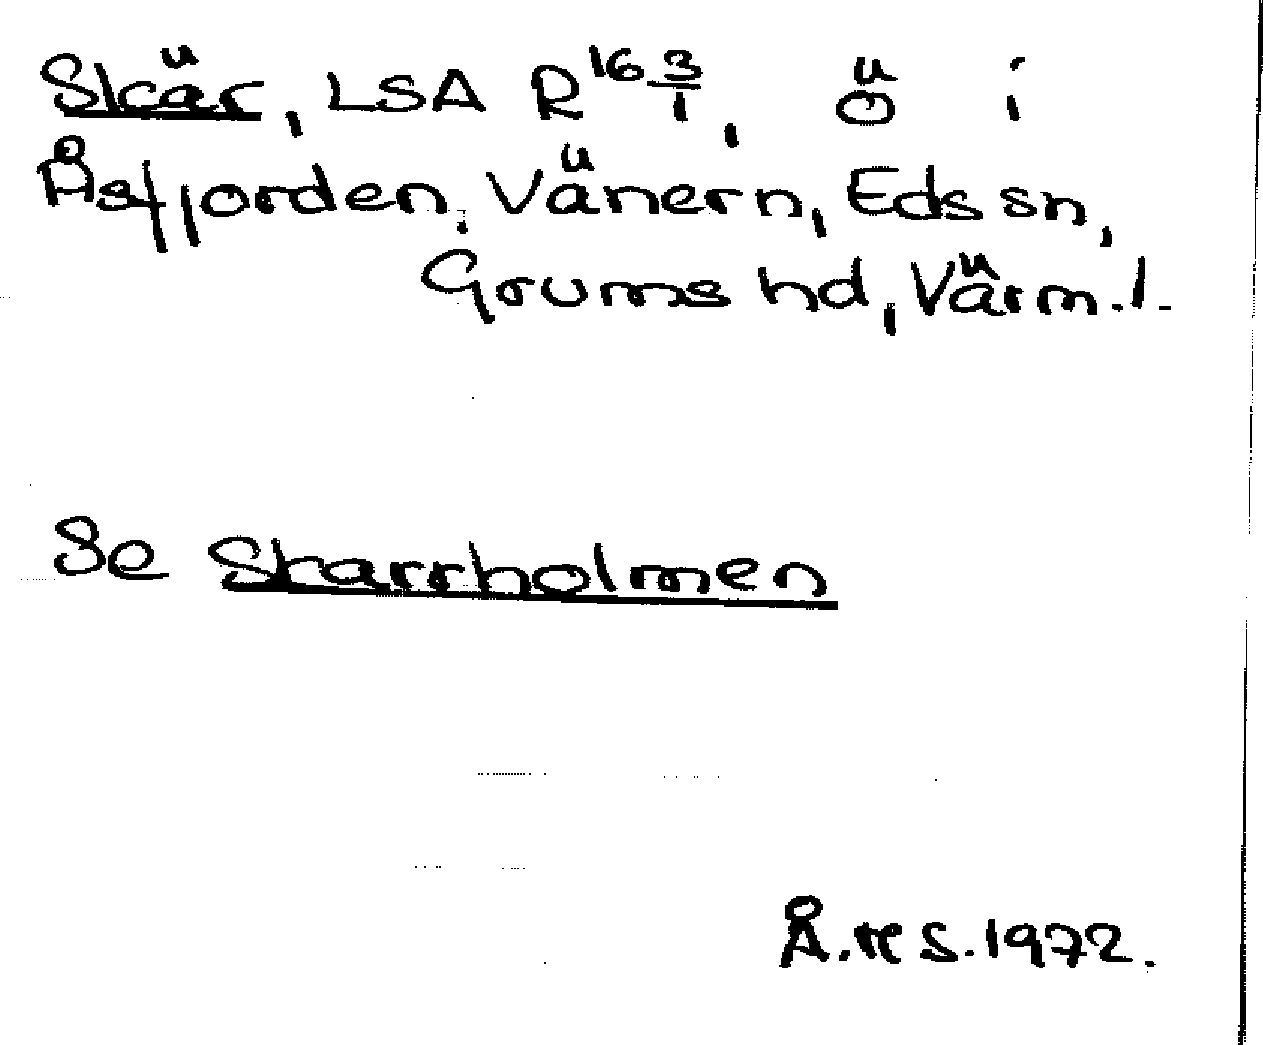 Skär, LSA R16 3/1, ö i
Åsfjorden, Vänern, Eds sn,
Grums hd, Värml.
Se Skarrholmen
1972.